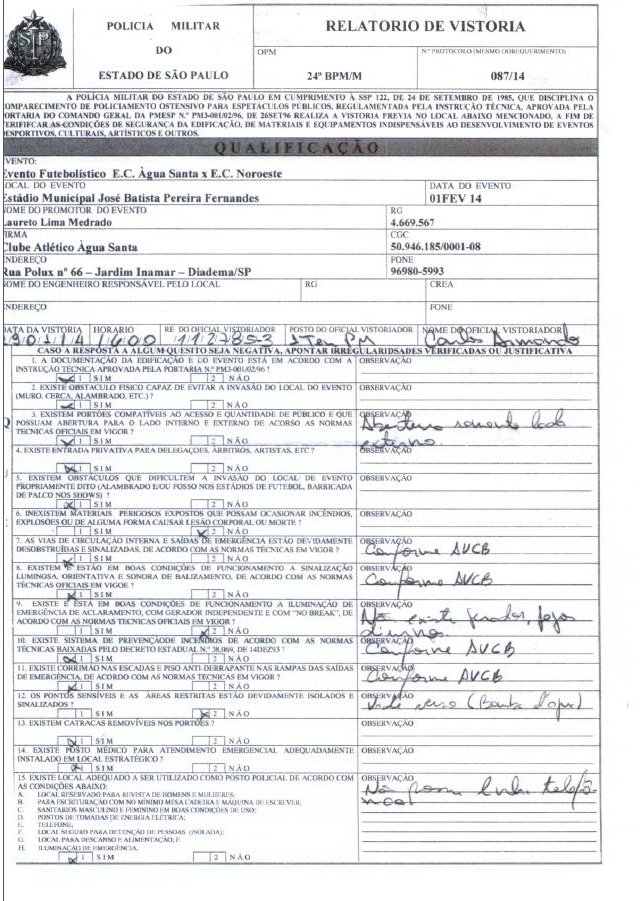 POLICIA MILITAR
DO
ESTADO DE SÃO PAULO
RELATORIO DE VISTORIA
OPM
24º BPM/M
N.º PROTOCOLO (MESMO DO REQUERIMENTO)
087/14
A POLÍCIA MILITAR DO ESTADO DE SÃO PAULO EM CUMPRIMENTO À SSP 122, DE 24 DE SETEMBRO DE 1985, QUE DISCIPLINA O
OMPARECIMENTO DE POLICIAMENTO OSTENSIVO PARA ESPETÁCULOS PÚBLICOS, REGULAMENTADA PELA INSTRUÇÃO TÉCNICA, APROVADA PELA
ORTARIA DO COMANDO GERAL DA PMESP N.º PM3-001/02/96, DE 26SET96 REALIZA A VISTORIA PREVIA NO LOCAL ABAIXO MENCIONADO, A FIM DE
ERIFIFCAR AS CONDIÇÕES DE SEGURANÇA DA EDIFICAÇÃO, DE MATERIAIS E EQUIPAMENTOS INDISPENSÁVEIS AO DESENVOLVIMENTO DE EVENTOS
DESPORTIVOS, CULTURAIS, ARTÍSTICOS E OUTROS.
QUALIFICAÇÃO
EVENTO:
Evento Futebolístico E.C. Àgua Santa x E.C. Noroeste
LOCAL DO EVENTO
Estádio Municipal José Batista Pereira Fernandes
DATA DO EVENTO
01FEV 14
NOME DO PROMOTOR DO EVENTO
Laureto Lima Medrado
RG
4.669.567
FIRMA
Clube Atlético Àgua Santa
CGC
50.946.185/0001-08
ENDEREÇO
Rua Polux nº 66 – Jardim Inamar – Diadema/SP
FONE
96980-5993
NOME DO ENGENHEIRO RESPONSÁVEL PELO LOCAL
RG
CREA
ENDEREÇO
FONE
DATA DA VISTORIA HORARIO RE DO OFICIAL VISTORIADOR POSTO DO OFICIAL VISTORIADOR NOME DO OFICIAL VISTORIADOR
1600 112785-3 1º Ten PM Carlos Armando
CASO A RESPOSTA A ALGUM QUESITO SEJA NEGATIVA, APONTAR IRREGULARIDSADES VERIFICADAS OU JUSTIFICATIVA
1. A DOCUMENTAÇÃO DA EDIFICAÇÃO E DO EVENTO ESTÁ EM ACORDO COM A
INSTRUÇÃO TÉCNICA APROVADA PELA PORTARIA N.º PM3-001/02/96 ?
1 SIM 2 NÃO
OBSERVAÇÃO
2. EXISTE OBSTACULO FISICO CAPAZ DE EVITAR A INVASÃO DO LOCAL DO EVENTO
(MURO, CERCA, ALAMBRADO, ETC.) ?
1 SIM 2 NÃO
OBSERVAÇÃO
3. EXISTEM PORTÕES COMPATÍVEIS AO ACESSO E QUANTIDADE DE PÚBLICO E QUE
POSSUAM ABERTURA PARA O LADO INTERNO E EXTERNO DE ACORSO AS NORMAS
TÉCNICAS OFICIAIS EM VIGOR ?
1 SIM 2 NÃO
OBSERVAÇÃO
Abertura somente lado
externo.
4. EXISTE ENTRADA PRIVATIVA PARA DELEGAÇÕES, ÁRBITROS, ARTISTAS, ETC ?
1 SIM 2 NÃO
OBSERVAÇÃO
5. EXISTEM OBSTÁCULOS QUE DIFICULTEM A INVASÃO DO LOCAL DE EVENTO
PROPRIAMENTE DITO (ALAMBRADO E/OU FOSSO NOS ESTÁDIOS DE FUTEBOL, BARRICADA
DE PALCO NOS SHOWS) ?
1 SIM 2 NÃO
OBSERVAÇÃO
6. INEXISTEM MATERIAIS PERIGOSOS EXPOSTOS QUE POSSAM OCASIONAR INCÊNDIOS,
EXPLOSÕES OU DE ALGUMA FORMA CAUSAR LESÃO CORPORAL OU MORTE ?
1 SIM 2 NÃO
OBSERVAÇÃO
7. AS VIAS DE CIRCULAÇÃO INTERNA E SAÍDAS DE EMERGÊNCIA ESTÃO DEVIDAMENTE
DESOBSTRUÍDAS E SINALIZADAS, DE ACORDO COM AS NORMAS TÉCNICAS EM VIGOR ?
1 SIM 2 NÃO
OBSERVAÇÃO
Conforme AVCB
8. EXISTEM E ESTÃO EM BOAS CONDIÇÕES DE FUNCIONAMENTO A SINALIZAÇÃO
LUMINOSA, ORIENTATIVA E SONORA DE BALIZAMENTO, DE ACORDO COM AS NORMAS
TÉCNICAS OFICIAIS EM VIGOR ?
1 SIM 2 NÃO
OBSERVAÇÃO
Conforme AVCB
9. EXISTE E ESTÁ EM BOAS CONDIÇÕES DE FUNCIONAMENTO A ILUMINAÇÃO DE
EMERGÊNCIA DE ACLARAMENTO, COM GERADOR INDEPENDENTE E COM "NO BREAK", DE
ACORDO COM AS NORMAS TECNICAS OFICIAIS EM VIGOR ?
1 SIM 2 NÃO
OBSERVAÇÃO
Não existe gerador, jogo
diurno.
10. EXISTE SISTEMA DE PREVENÇAODE INCÊNDIOS DE ACORDO COM AS NORMAS
TÉCNICAS BAIXADAS PELO DECRETO ESTADUAL N.º 38.069, DE 14DEZ93 ?
1 SIM 2 NÃO
OBSERVAÇÃO
Conforme AVCB
11. EXISTE CORRIMÃO NAS ESCADAS E PISO ANTI-DERRAPANTE NAS RAMPAS DAS SAÍDAS
DE EMERGÊNCIA, DE ACORDO COM AS NORMAS TÉCNICAS EM VIGOR ?
1 SIM 2 NÃO
OBSERVAÇÃO
Conforme AVCB
12. OS PONTOS SENSÍVEIS E AS ÁREAS RESTRITAS ESTÃO DEVIDAMENTE ISOLADOS E
SINALIZADOS ?
1 SIM 2 NÃO
OBSERVAÇÃO
Vide verso
13. EXISTEM CATRACAS REMOVÍVEIS NOS PORTÕES ?
1 SIM 2 NÃO
OBSERVAÇÃO
14. EXISTE POSTO MÉDICO PARA ATENDIMENTO EMERGENCIAL ADEQUADAMENTE
INSTALADO EM LOCAL ESTRATÉGICO ?
1 SIM 2 NÃO
OBSERVAÇÃO
15. EXISTE LOCAL ADEQUADO A SER UTILIZADO COMO POSTO POLICIAL DE ACORDO COM
AS CONDIÇÕES ABAIXO:
A. LOCAL RESERVADO PARA REVISTA DE HOMENS E MULHERES;
B. PARA ESCRITURAÇÃO COM NO MÍNIMO MESA CADEIRA E MÁQUINA DE ESCREVER;
C. SANITÁRIOS MASCULINO E FEMININO EM BOAS CONDIÇÕES DE USO;
D. PONTOS DE TOMADAS DE ENERGIA ELÉTRICA;
E. TELEFONE;
F. LOCAL SEGURO PARA DETENÇÃO DE PESSOAS (ISOLADA);
G. LOCAL PARA DESCANSO E ALIMENTAÇÃO; E
H. ILUMINAÇÃO DE EMERGÊNCIA.
1 SIM 2 NÃO
OBSERVAÇÃO
Não possui